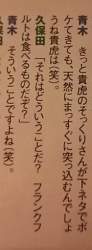 青木　きっと貴虎のそっくりさんが下ネタでボ
ケてきても、天然にまっすぐに突っ込むんでしょ
うね貴虎は（笑）。
久保田　「それはどういうことだ？　フランクフ
ルトは食べるものだぞ？」
青木　そういうことですよね（笑）。